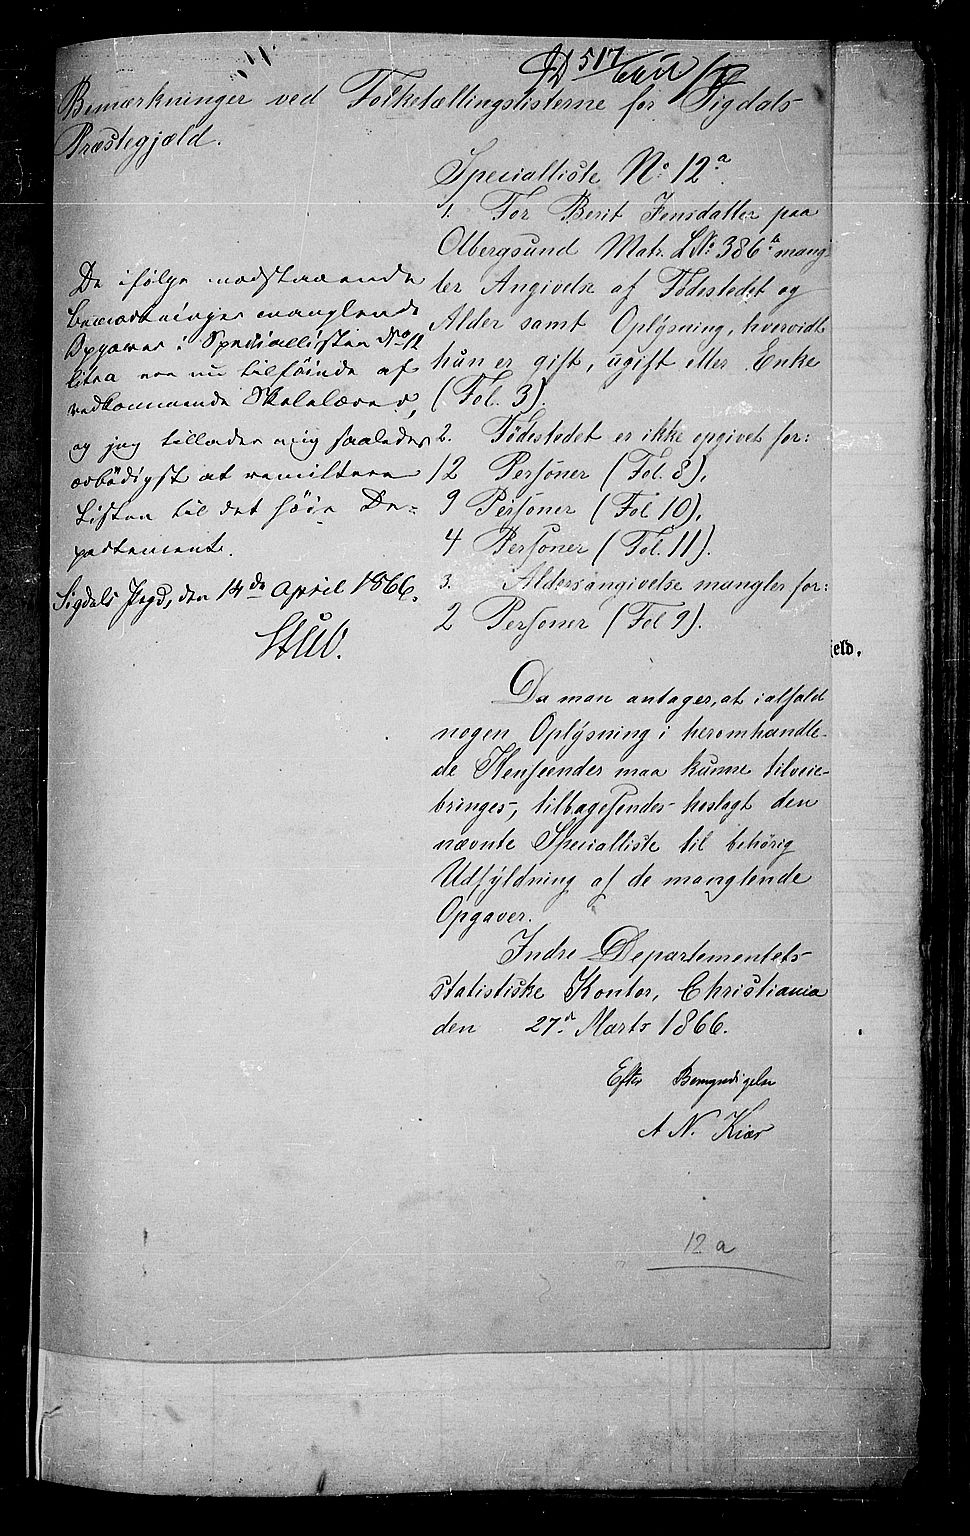 517
Bemærkninger ved Folketællingslisterne for Sigdals
Præstegjæld.
Specialliste No. 12a.
1. For Berit Jensdatter paa
Olbergsund Matr. L No. 386a mang-
ler Angivelse af Fødestedet og
Alder samt Oplysning, hvorvidt
hun er gift, ugift eller Enke
(Fol. 3).
2. Fødestedet er ikke opgivet for:
12 Personer (Fol. 8),
9 Personer (Fol 10),
4 Personer (Fol. 11).
3. Aldersangivelse mangler for:
2 Personer (Fol 9).
Da man antager, at ialfald
nogen Oplysning i heromhandle-
de Henseender maa kunne tilveie-
bringes, tilbagesendes heslagt den
nævnte Specialliste til behørig
Udfyldning af de manglende
Opgaver.
Indre Departementets
statistiske Kontor, Christiania
den 27de Marts 1866.
Efter Bemyndigelse
A N. Kiær
De ifølge modstaaende
Bemærkninger manglende
Opgaver i Speciallisten No 12
litra a ere nu tilføiede af
vedkommende Skolelærer,
og jeg tillader mig saaledes
ærbødigst at remittere
Listen til det høie De-
partement.
Sigdals Prgd, den 14de April 1866.
Stub.
jeld.
12 a